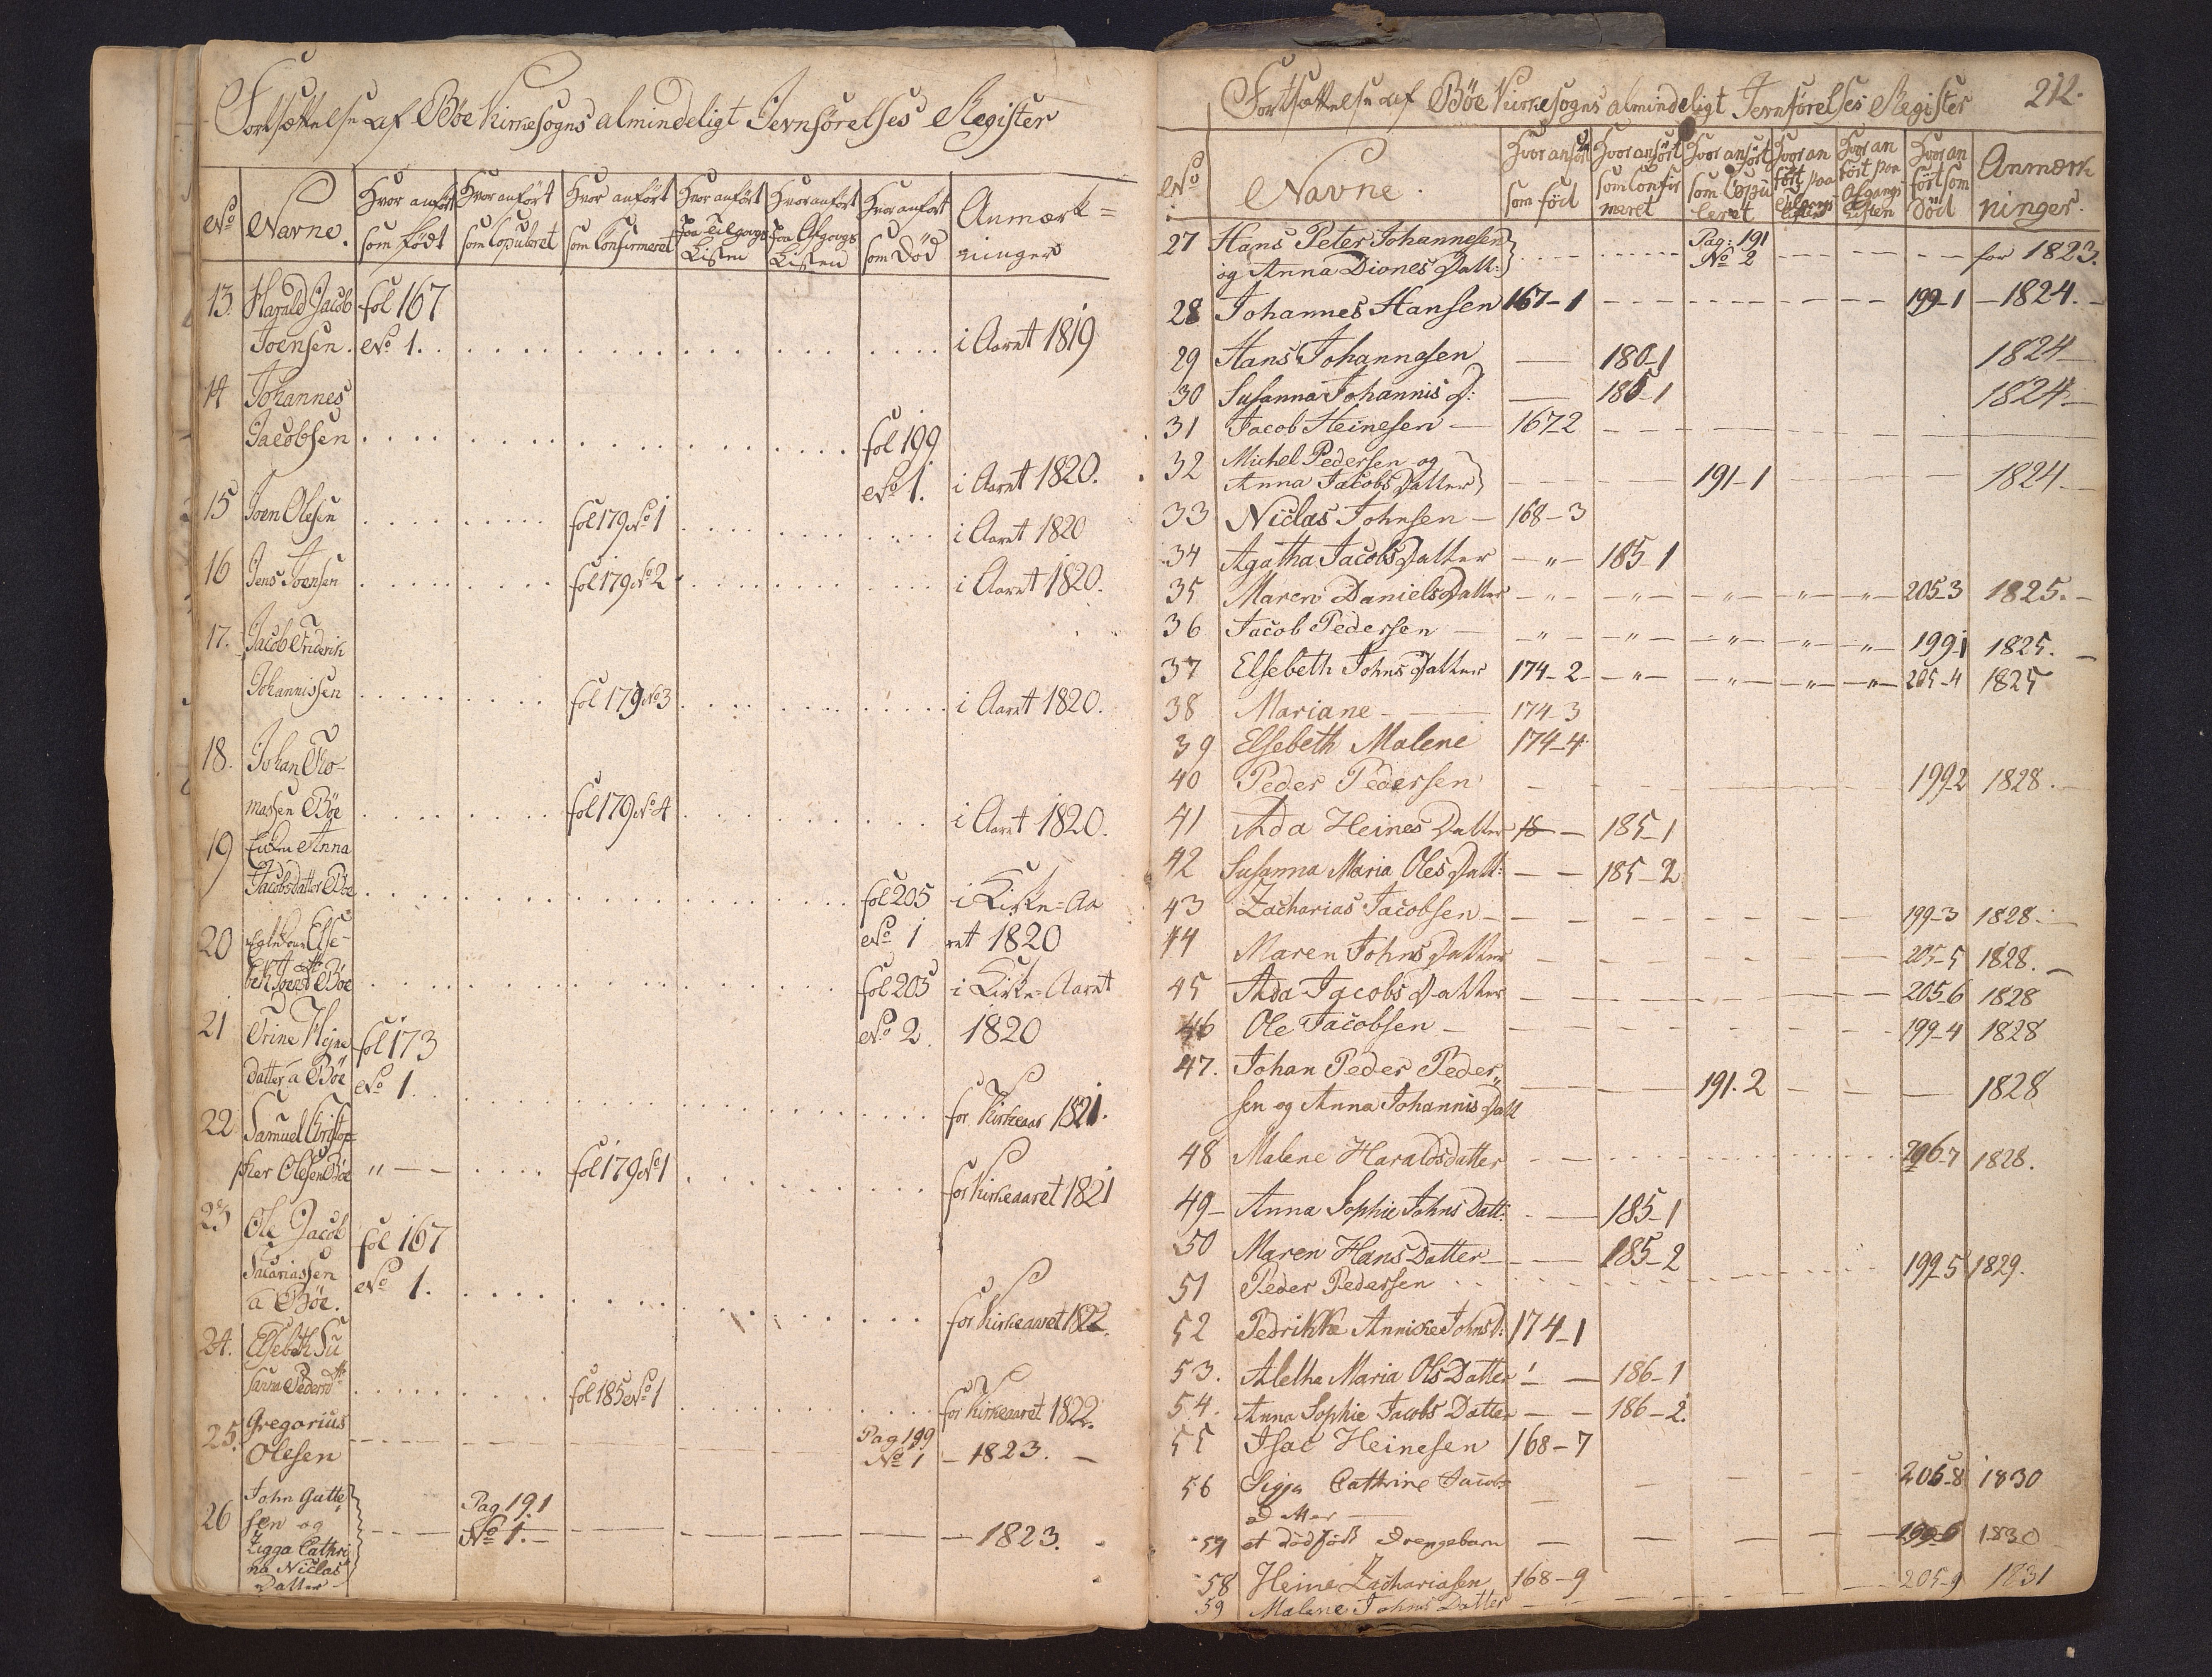 Fortsættelse af Böe Kirkesogns almindeligt Jevnförelses Register
No Navne. Hvor anfört som födt Hvor anfört som Copuleret Hvor anfört som Confirmeret Hvor anfört paa Tilgangs Listen Hvor anfört paa Afgangs Listen Hvor anfört som Död Anmærk=ninger
13. Harald Jacob fol 167
Joensen. No 1. i Aaret 1819
14 Johannes
Jacobsen fol 199
No 1. i Aaret 1820.
15 Joen Olesen fol 179 No 1 i Aaret 1820
16 Jens Joensen fol 179 No 2 i Aaret 1820.
17. Jacob Friderich
Johannissen fol 179 No 3 i Aaret 1820.
18. Johan Tho-
massen Böe fol 179 No 4 i Aaret 1820.
19 Enken Anna
Jacobsdatter Böe fol 205 i Kirke=Aa
No 1 ret 1820
20 Else-
beth Joensd Böe fol 205 i Kirke=Aaret
No 2. 1820
21 Trine Hejne fol 173
datter a Böe No 1. for Kirkeaar 1821.
22 Samuel Christop=
pher Olesen Böe " fol 179 No 1 for Kirkeaaret 1821
23 Ole Jacob fol 167
Sacariassen No 1.
a Böe. for Kirkeaaret 1822.
24. Elsebeth Su
sanna Pedersd fol 185 No 1 for Kirkeaaret 1822.
25. Gregarius Pag 199
Olesen No 1 - 1823. -
26 John Gutte
sen og Pag 191
Zigga Cathri No 1. - 1823.
na Niclas
Datter
Fortsættelse af Böe Kirkesogns almindeligt Jevnförelses Register 212.
No Navne. Hvor anfört som födt Hvor anfört som Confir meret Hvor anfört som Copu leret Hvor an fört paa Tilgangs Listen Hvor an fört paa Afgangs Listen Hvor an fört som Död Anmærk ninger.
27 Hans Peter Johannesen Pag: 191
og Anna Diones Datt: No 2 for 1823.
28 Johannes Hansen 167-1 199-1 -1824.-
29 Hans Johannesen 180-1 1824-
30 Susanna Johannis D: 185-1 1824-
31 Jacob Heinesen - 167-2
32 Michel Pedersen og
Anna Jacobs Datter 191-1 1824-
33 Niclas Johnsen - 168-3
34 Agatha Jacobs Datter -"- 185-1
35 Maren Daniels Datter -"- -"- -"- -"- -"- 205-3 1825.-
36 Jacob Pedersen - -"- -"- -"- -"- -"- 199-1 1825.-
37 Elsebeth Johns Datter 174-2 -"- -"- -"- -"- 205-4 1825
38 Mariane - 174-3
39 Elsebeth Malene 174-4
40 Peder Pedersen 199-2 1828.
41 Ada Heines Datter 185-1
42 Susanna Maria Oles Datt: - - 185-2
43 Zacharias Jacobsen - 199-3 1828.-
44 Maren Johns Datter 205-5 1828.-
45 Ada Jacobs Datter 205-6 1828
46 Ole Jacobsen - 199-4 1828
47. Johan Peder Peder„
sen og Anna Johannis Datt 191.2 1828
48 Malene Haraldsdatter 206-7 1828.
49- Anna Sophie Johns Datt: 185-1
50 Maren Hans Datter- 185-2
51 Peder Pedersen 199-5 1829.
52 Pedrikke Annicke Johns D: 174-1
53. Aletha Maria Ols Datter 186-1
54. Anna Sophie Jacobs Datter - - 186-2.
55 Isac Heinesen 168-7
56 Sigga Cathrine Jacobs
datter 206-8 1830
57 et dödfödt Drengebarn 199-6 1830
58 Heine Zachariasen 168-9
59 Malene Johns Datter 205-9 1831